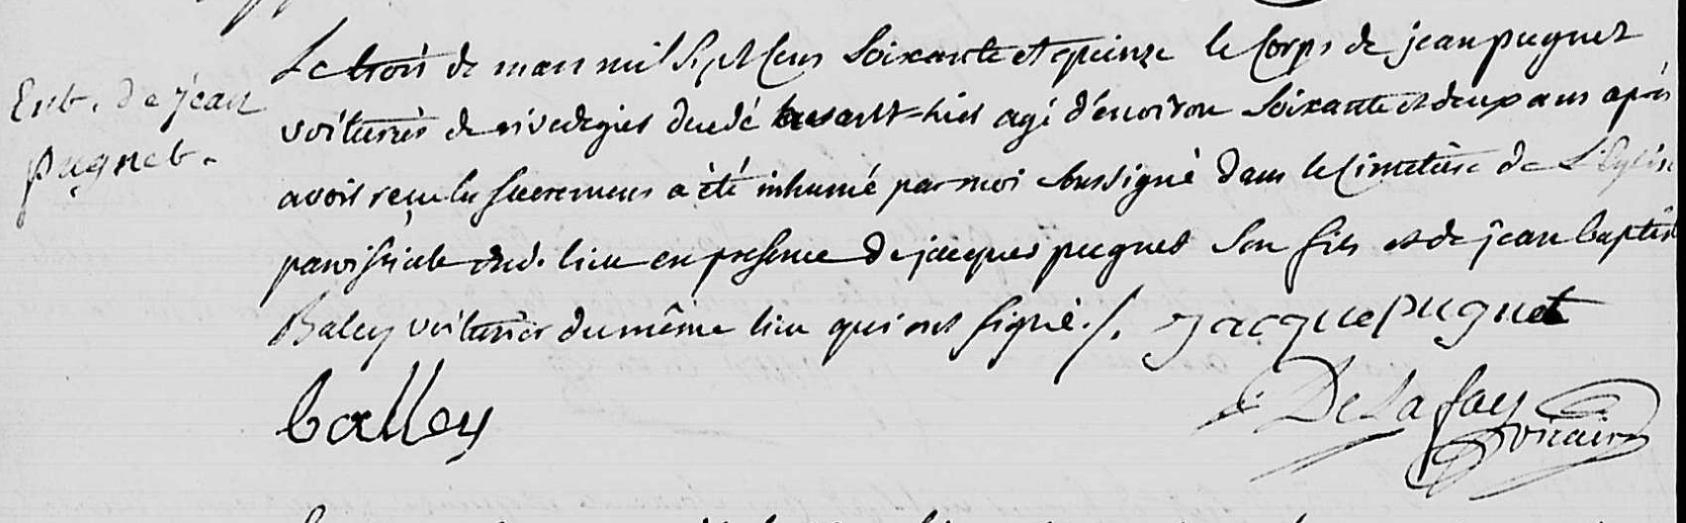 Ent. de jean
pugnet.
Le trois de mars mil sept cens soixante et quinze le Corps de jean pugnet
voiturier de rivedegier decédé avant-hier agé d'environ soixante et deux ans après
avoir reçu les sacremens a été inhumé par moi soussigné dans le Cimetière de L'Eglise
paroissiale dud. lieu en presence de jacques pugnet son fils et de jean baptiste
Baley voiturier du même lieu qui ont signé ./. jacque pugnet
balley
De Lafay
vicaire